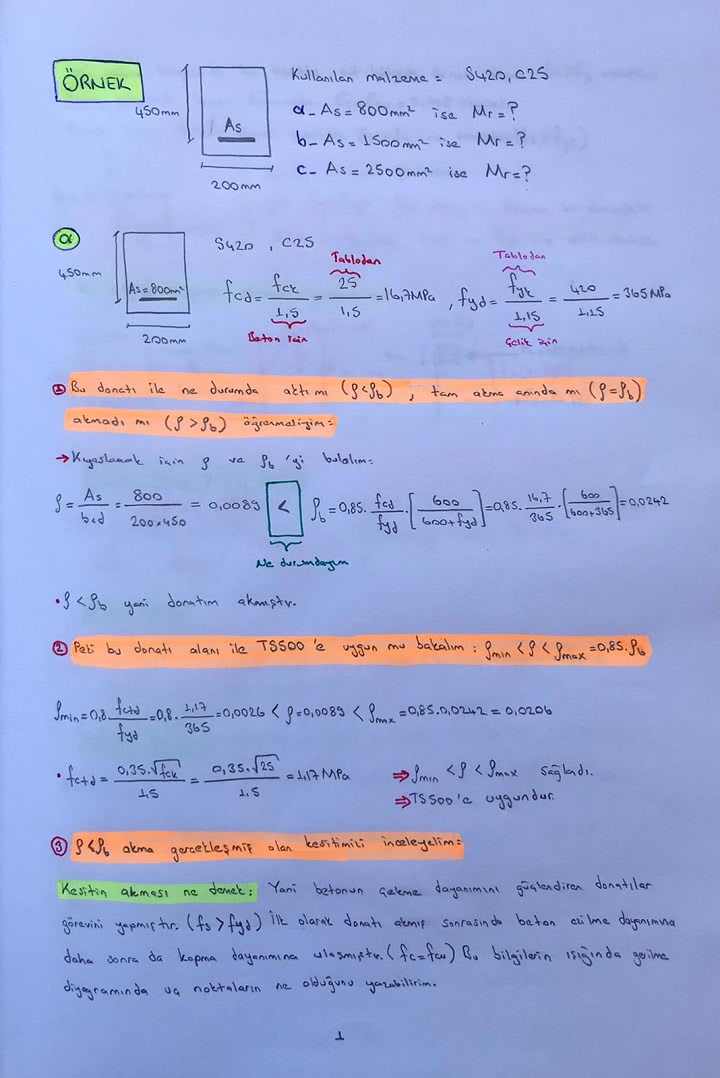 ÖRNEK
450mm
As
200mm
Kullanılan malzeme = S420, C25
a- As = 800mm² ise Mr = ?
b- As = 1500mm² ise Mr = ?
c- As = 2500mm² ise Mr = ?
a
450mm
As = 800mm²
200mm
S420, C25
Tablodan
fcd = fck / 1,5 = 25 / 1,5 = 16,7MPa, fyd = fyk / 1,15 = 420 / 1,15 = 365 MPa
Beton için
Tablodan
Çelik için
① Bu donatı ile ne durumda aktı mı (ρ<ρb), tam akma anında mı (ρ=ρb)
akmadı mı (ρ>ρb) öğrenmeliyim=
→ Kıyaslamak için ρ ve ρb'yi bulalım=
ρ = As / b.d = 800 / 200×450 = 0,0089 < ρb = 0,85. fcd / fyd . [600 / 600+fyd] = 0,85. 16,7 / 365 . [600 / 600+365] = 0,0242
Ne durumdayım
• ρ<ρb yani donatım akmıştır.
② Peki bu donatı alanı ile TS500'e uygun mu bakalım : ρmin < ρ < ρmax = 0,85. ρb
ρmin = 0,8. fctd / fyd = 0,8. 1,17 / 365 = 0,0026 < ρ = 0,0089 < ρmax = 0,85.0,0242 = 0,0206
• fctd = 0,35.√fck / 1,5 = 0,35.√25 / 1,5 = 1,17 MPa
⇒ ρmin < ρ < ρmax sağladı.
⇒ TS500'e uygundur.
③ ρ<ρb akma gerçekleşmiş olan kesitimizi inceleyelim=
Kesitin akması ne demek: Yani betonun çekme dayanımını güçlendiren donatılar
görevini yapmıştır. (fs > fyd) İlk olarak donatı akmış sonrasında beton ezilme dayanımına
daha sonra da kopma dayanımına ulaşmıştır. (fc = fcu) Bu bilgilerin ışığında gerilme
diyagramında uç noktaların ne olduğunu yazabilirim.
1